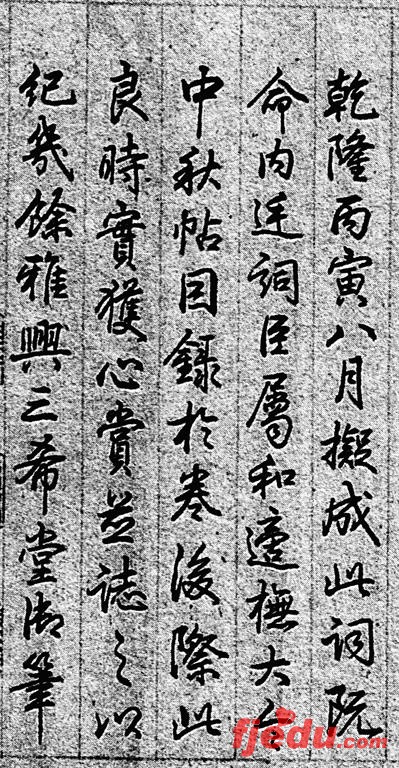 乾隆丙寅八月擬成此詞既
命內廷詞臣屬和遂橅大令
中秋帖因錄於卷後際此
良時實獲心賞並誌之以
紀幾餘雅興三希堂御筆
fjedu.com